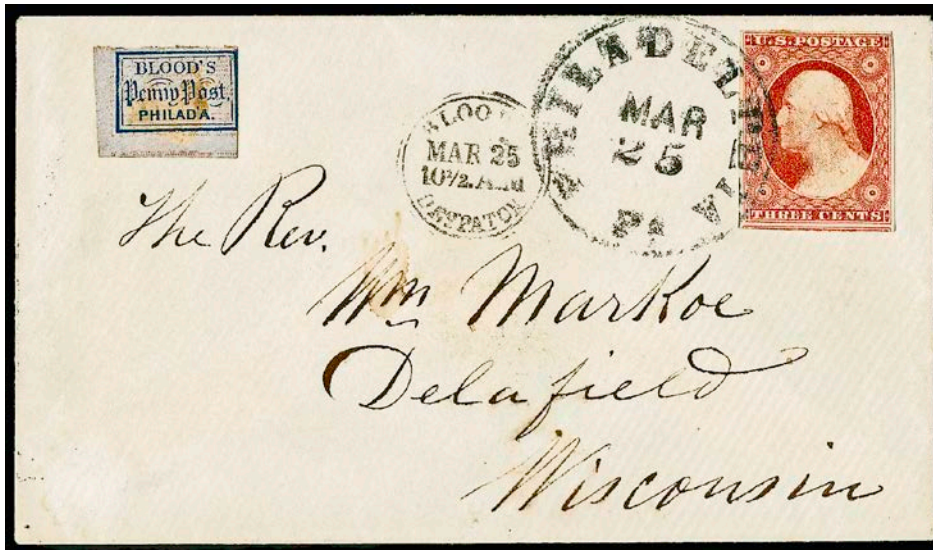 BLOOD'S
Penny Post,
PHILADA.
BLOO
MAR 25
10½ A
DESPATCH
PHILADELPHIA
MAR
25
PA
U.S. POSTAGE
THREE CENTS
The Rev.
Wm Markoe
Delafield
Wisconsin